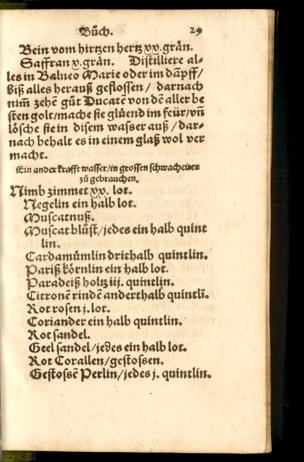 Bůch. 29
Bein vom hirtzen hertz xx.grån.
Saffran x.grån. Distilliere al-
les in Balneo Marie oder im dāpff/
biß alles herauß geflossen/ darnach
nim̃ zehē gůt Ducatē von dē aller be
sten golt/mache sie glüend im feür/vñ
lösche sie in disem wasser auß/dar-
nach behalt es in einem glaß wol ver
macht.
Ein ander krafft wasser/in grossen schwacheiten
zů gebrauchen.
Nimb zimmet xx. lot.
Negelin ein halb lot.
Muscatnuß.
Muscat blůst/jedes ein halb quint
lin.
Cardamůmlin drithalb quintlin.
Pariß körnlin ein halb lot.
Paradeiß holtz iij. quintlin.
Citronē rindē anderthalb quintlī.
Rot rosen j. lot.
Coriander ein halb quintlin.
Rot sandel.
Geel sandel/jedes ein halb lot.
Rot Corallen/gestossen.
Gestossē Perlin/jedes j. quintlin.